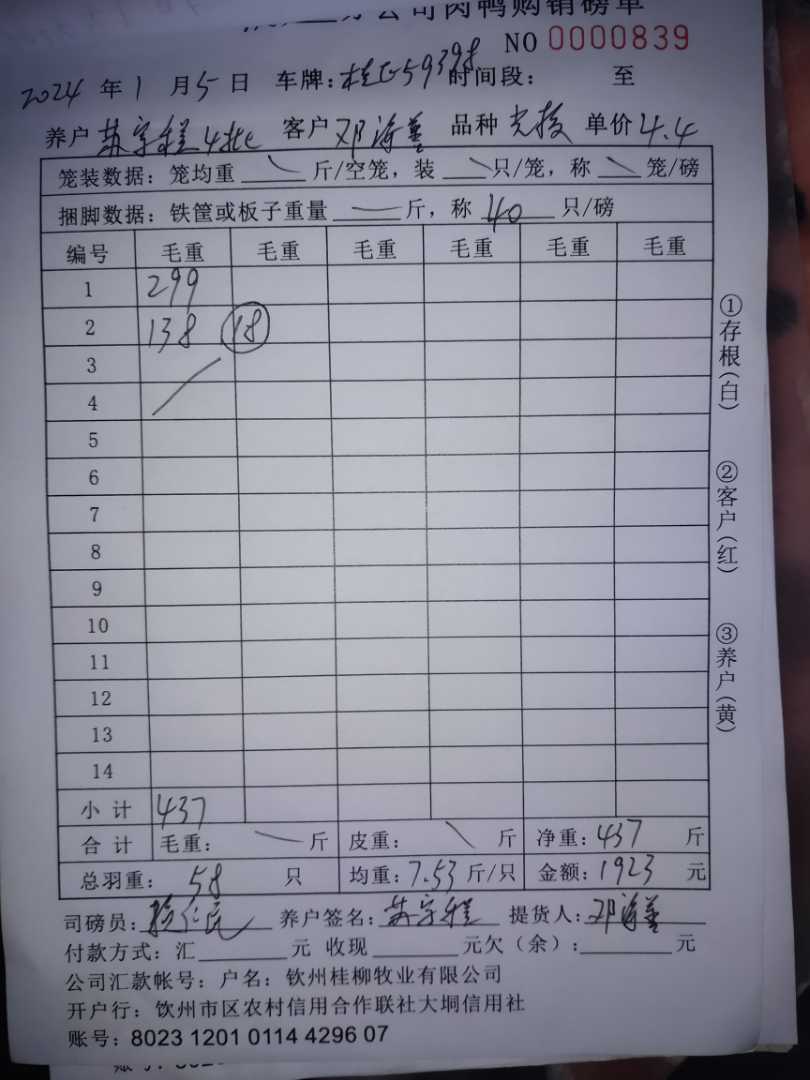 分公司肉鸭购销磅单
NO 0000839
2024 年 1 月 5 日 车牌: 59398 时间段: 至
养户 苏宇程4批 客户 邓海善 品种 单价 4.4
笼装数据: 笼均重 斤/空笼, 装 只/笼, 称 笼/磅
捆脚数据: 铁筐或板子重量 斤, 称 40 只/磅
编号 毛重 毛重 毛重 毛重 毛重 毛重
1 299
2 138 18
3
4
5
6
7
8
9
10
11
12
13
14
小计 437
合计 毛重: 斤 皮重: 斤 净重: 437 斤
总羽重: 58 只 均重: 7.53 斤/只 金额: 1923 元
司磅员: 养户签名: 苏宇程 提货人: 邓海善
付款方式: 汇 元 收现 元欠(余): 元
公司汇款帐号: 户名: 钦州桂柳牧业有限公司
开户行: 钦州市区农村信用合作联社大垌信用社
账号: 8023 1201 0114 4296 07
①存根(白)
②客户(红)
③养户(黄)